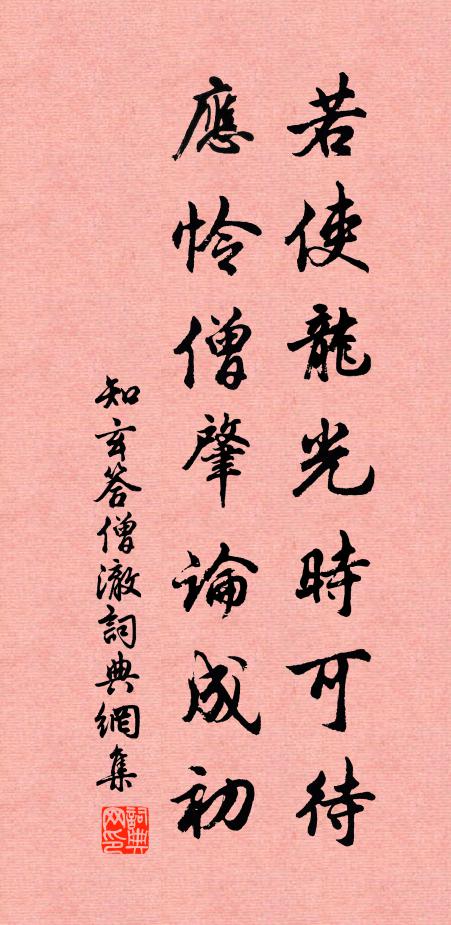 若使龍光時可待
應怜僧肇論成初
知玄答僧澈詞典網集
詞典
网印